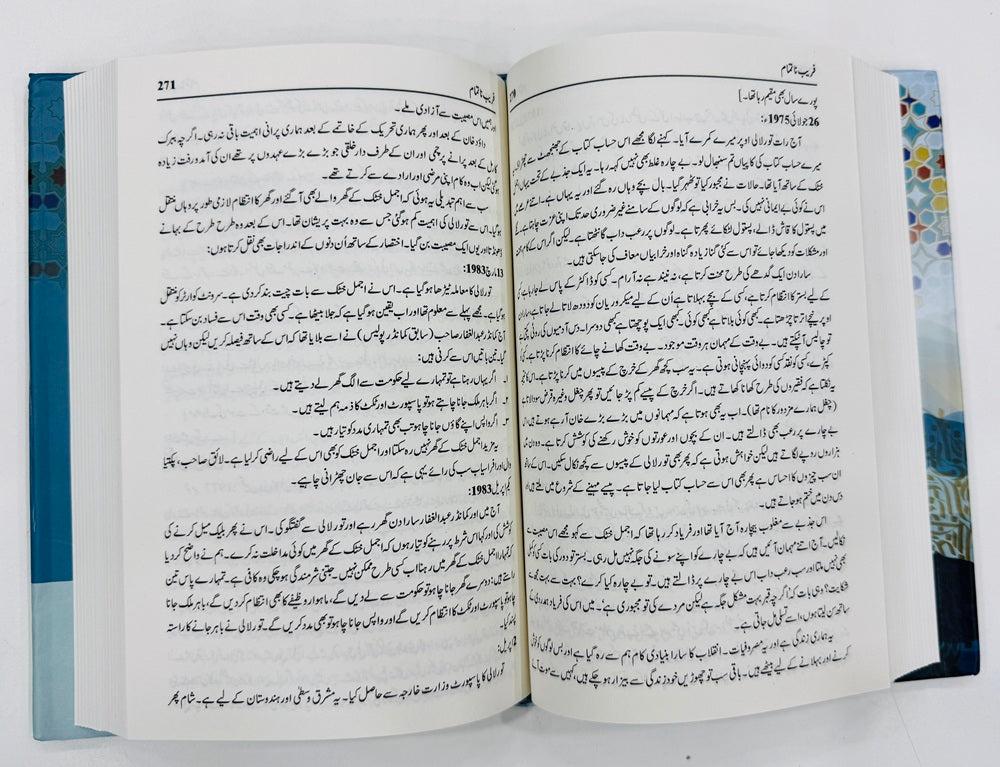 فریب ناتمام
270
پورے سال بھی مقیم رہا تھا۔]
26 جولائی 1975ء:
آج رات تور لالی اوپر میرے کمرے آیا۔ کہنے لگا مجھے اس حساب کتاب کے جھنجھٹ سے چھڑاؤ
میرے حساب کتاب کی کاپیاں تم سنبھال لو۔ بے چارہ غلط بھی نہیں کہہ رہا۔ یہ ایک جذبے کے تحت یہاں
خٹک کے ساتھ آیا تھا۔ حالات نے مجبور کیا تو ٹھہر گیا۔ بال بچے وہاں رہ گئے اور یہ یہاں ہے۔ اتنے
اس نے کوئی بے ایمانی نہیں کی۔ بس یہ خرابی ہے کہ لوگوں کے سامنے غیر ضروری حد تک اپنی عزت چاہتا ہے۔
میں پستول کا قاش ڈالے، پستول لٹکائے پھرتا ہے۔ لوگوں پر رعب داب گانٹھتا ہے۔ لیکن اگر اس کے کام
اور مشکلات کو دیکھا جائے تو اس سے کئی گنا زیادہ گناہ اور خرابیاں معاف کی جا سکتی ہیں۔
سارا دن ایک گدھے کی طرح محنت کرتا ہے، نہ نیند ہے نہ آرام۔ کسی کو ڈاکٹر کے پاس لے جا رہا ہے
کے لیے بستر کا انتظام کرتا ہے، کسی کے بچے بہلاتا ہے اُن کے لیے میکرو ریان کو دودھ لاتا ہے
اوپر نیچے اترتا چڑھتا ہے۔ کبھی کوئی بلاتا ہے کبھی کوئی۔ کبھی ایک پوچھتا ہے کبھی دوسرا۔ دس آدمیوں کی روٹی پکتی
تو چالیس آ ٹپکتے ہیں۔ بے وقت کے مہمان ہر وقت موجود۔ بے وقت کھانے چائے کا انتظام کرنا پڑتا ہے۔
کپڑے، کسے نقد کسی کو دوائی پہنچانی ہوتی ہے۔ یہ سب کچھ گھر کے خرچ کے پیسوں میں کرنا پڑتا ہے۔ اس کا
یہ نکلتا ہے کہ فقیروں کی طرح کھانا کھاتے ہیں۔ اگر خرچ کے پیسے کم پڑ جائیں تو پھر چغل وغیرہ قرض سودا لاتے
(چغل ہمارے مزدور کا نام تھا)۔ اب یہ بھی ہوتا ہے کہ مہمانوں میں بڑے بڑے خان آ رہے ہوتے ہیں
بے چارے پر رعب بھی ڈالتے ہیں۔ ان کے بچوں اور عورتوں کو خوش رکھنے کی کوشش کرتا ہے۔
ہزاروں روپے لگاتے ہیں لیکن خواہش ہوتی ہے کہ پھر بھی تور لالی کے پیسوں سے کچھ نکال سکیں۔ اس کے
ان سب چیزوں کا احساس ہے پھر بھی اس سے حساب کتاب لیا جاتا ہے۔ پیسے مہینے کے شروع میں ملتے ہیں
دس دن میں ختم ہو جاتے ہیں۔
اس جذبے سے مغلوب بیچارہ آج آیا تھا اور فریاد کر رہا تھا کہ اجمل خٹک سے کہو مجھے اس مصیبت سے
نکالیں۔ آج اتنے مہمان آئیں ہیں کہ بے چارے کو اپنے سونے کی جگہ نہیں مل رہی۔ بستر تو دور کی بات کوئی
بھی نہیں ملتا اور سب رعب داب اس بے چارے پر ڈالتے ہیں۔ تو بے چارہ کیا کرے؟ بہت سے
شکایت؟ وہی بات کہ اگرچہ قبر بہت مشکل جگہ ہے لیکن مردے کی تو مجبوری ہے۔ میں اس کی فریاد ہمدردی کے
ساتھ سُن لیتا ہوں، اسے تسلی مل جاتی ہے۔
یہ ہماری زندگی ہے اور یہ مصروفیات۔ انقلاب کا سارا بنیادی کام ہم سے رہ گیا ہے اور بس لوگوں کو خوش
کرنے اور بہلانے کے لیے بیٹھے ہیں۔ باقی سب تو چھوڑیں خود زندگی سے بیزار ہو چکے ہیں، کہیں سے موت آئے
271
فریب ناتمام
اور ہمیں اس مصیبت سے آزادی ملے۔
داؤد خان کے بعد اور پھر ہماری تحریک کے خاتمے کے بعد ہماری پرانی اہمیت باقی نہ رہی۔ اگرچہ ببرک
کارمل کے بعد پرانے پرچمی اور ان کے طرف دار خلقی جو بڑے بڑے عہدوں پر تھے ان کی آمد و رفت زیادہ
ہوگئی لیکن اب وہ کام اپنی مرضی اور ارادے سے کرتے تھے۔
سب سے اہم تبدیلی یہ ہوئی کہ اجمل خٹک کے گھر والے بھی آ گئے اور گھر کا انتظام لازمی طور پر وہاں منتقل
ہوگیا۔ اس سے تور لالی کی اہمیت کم ہوگئی جس سے وہ بہت پریشان تھا۔ اس کے بعد وہ طرح طرح کے بہانے
ڈھونڈتا اور یوں ایک مصیبت بن گیا۔ اختصار کے ساتھ اُن دنوں کے اندراجات بھی نقل کرتا ہوں:
13 مارچ 1983:
تور لالی کا معاملہ ٹیڑھا ہو گیا ہے۔ اس نے اجمل خٹک سے بات چیت بند کر دی ہے۔ سرونٹ کوارٹر کو منتقل
ہو گیا ہے۔ مجھے پہلے سے معلوم تھا اور اب یقین ہو گیا ہے کہ جلا بیٹھا ہے۔ کسی بھی وقت اس سے فساد بن سکتا ہے۔
آج کمانڈر عبدالغفار صاحب (سابق کمانڈر پولیس) نے اسے بلایا تھا کہ اس کے ساتھ فیصلہ کریں لیکن وہاں نہیں
گیا۔ تین باتیں اس سے کرنی تھیں:
۱۔ اگر یہاں رہنا ہے تو تمہارے لیے حکومت سے الگ گھر لے دیتے ہیں۔
۲۔ اگر باہر ملک جانا چاہتے ہو تو پاسپورٹ اور ٹکٹ کا ذمہ ہم لیتے ہیں۔
۳۔ اگر واپس اپنے گاؤں جانا چاہو تب بھی تمہاری مدد کو تیار ہیں۔
یہ مزید اجمل خٹک کے گھر نہیں رہ سکتا اور اجمل خٹک کو بھی اس کے لیے راضی کر لیا ہے۔ لائق صاحب، پکتیا
وال اور افراسیاب سب کی رائے یہی ہے کہ اس سے جان چھڑانی چاہیے۔
یکم اپریل 1983:
آج میں اور کمانڈر عبدالغفار سارا دن گھر رہے اور تور لالی سے گفتگو کی۔ اس نے پھر بلیک میل کرنے کی
کوشش کی اور کہا اس شرط پر رہنے کو تیار ہوں کہ اجمل خٹک کے گھر میں کوئی مداخلت نہ کرے۔ ہم نے واضح کر دیا
کہ تمہارا اجمل خٹک کے گھر میں رہنا اب کسی طرح ممکن نہیں۔ جتنی شرمندگی ہو چکی وہ کافی ہے۔ تمہارے پاس تین
راستے ہیں: دوسرے گھر جانا چاہو تو حکومت سے لے دیں گے، ماہوار وظیفے کا بھی انتظام کر دیں گے، باہر ملک جانا
چاہو تو پاسپورٹ اور ٹکٹ کا انتظام کریں گے اور واپس جانا چاہو تو بھی مدد کریں گے۔ تور لالی نے باہر جانے کا راستہ
پسند کیا۔
2 اپریل:
تور لالی کا پاسپورٹ وزارت خارجہ سے حاصل کیا۔ یہ مشرق وسطیٰ اور ہندوستان کے لیے ہے۔ شام پھر